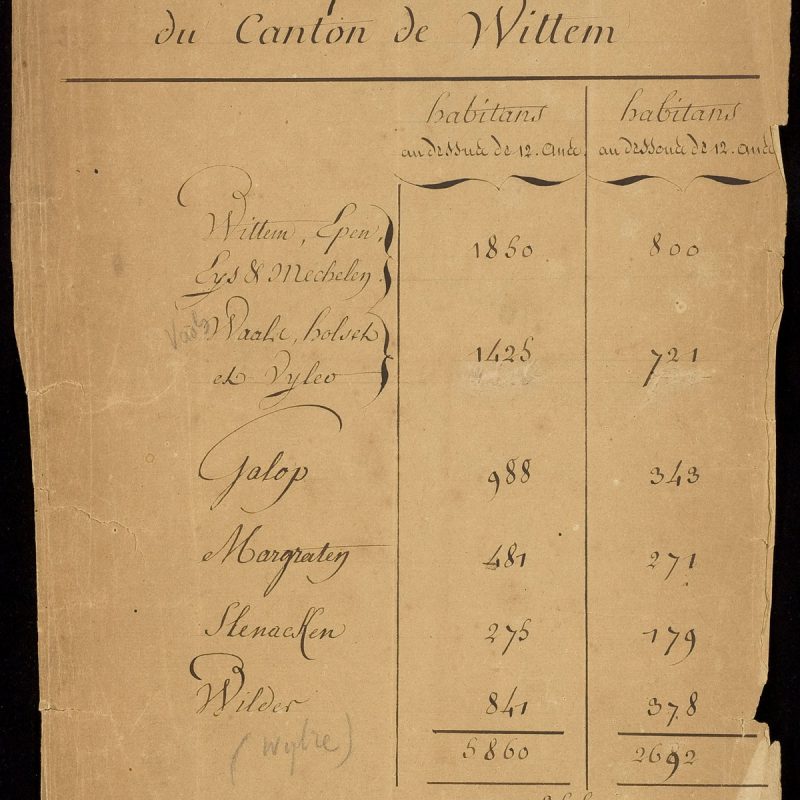 du Canton de Wittem
habitans habitans
au dessus de 12. ans. au dessous de 12. ans
Wittem, Epen,
Eys & Mechelen 1850 800
Vaals Waals, holset
et Vylen 1425 721
Galop 988 343
Margraten 481 271
Slenacken 275 179
Wilder 841 378
(Wylre) 5860 2692